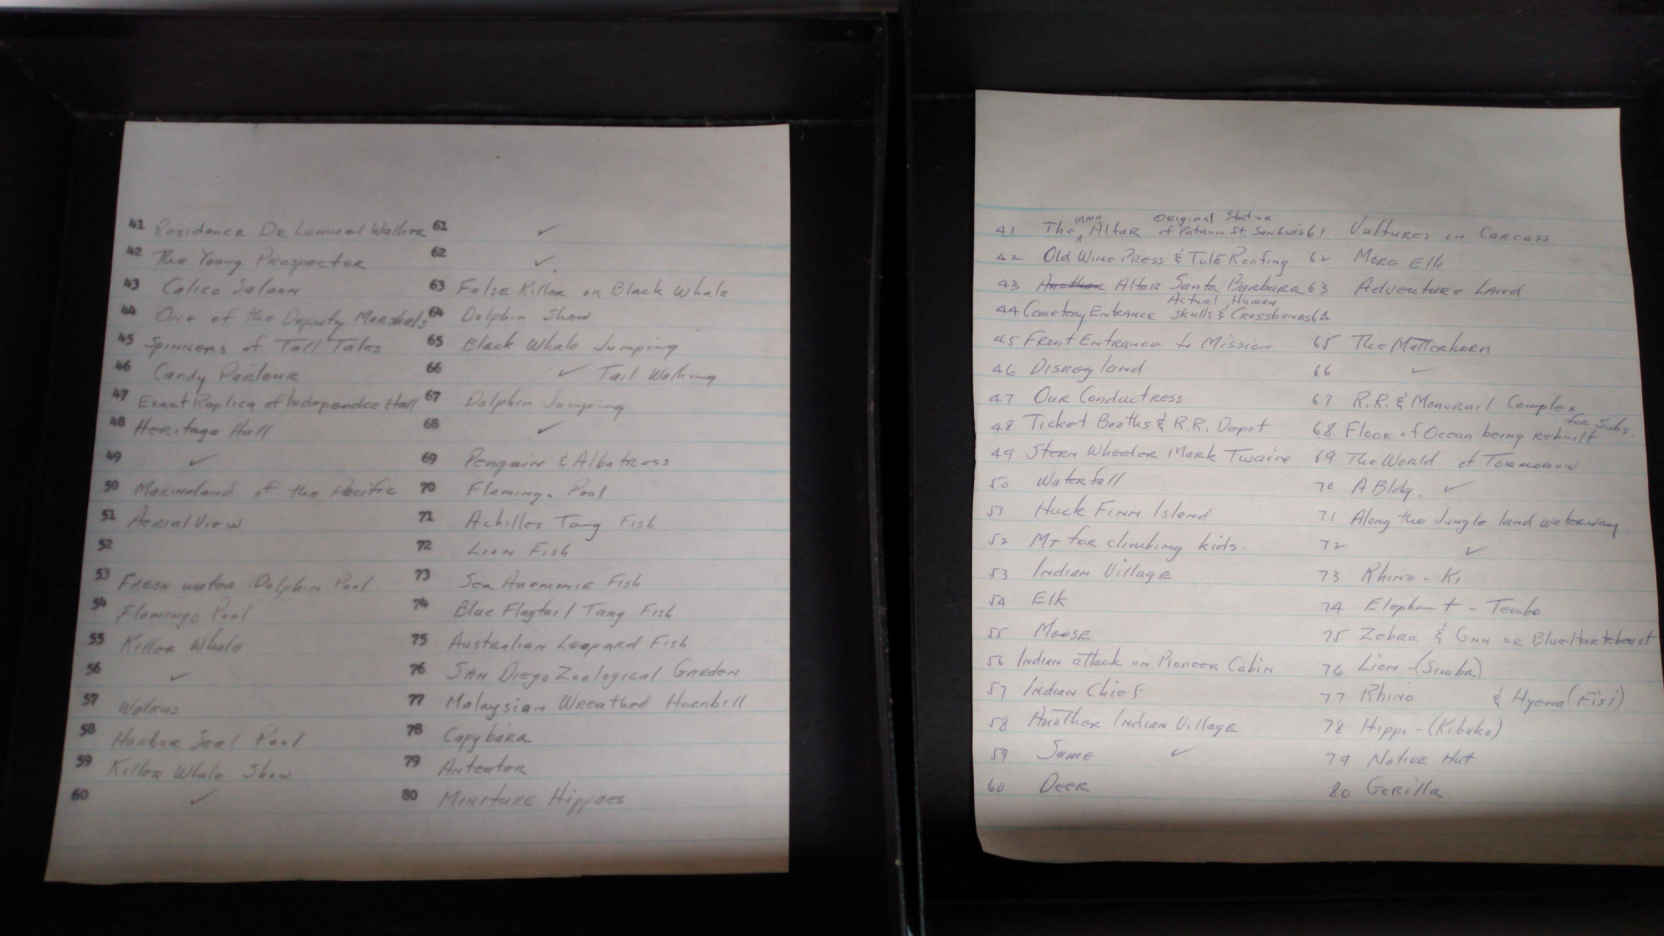 41 Residence De Lemuel Walters
42 The Young Prospector
43 Calico Saloon
44 One of the Deputy Marshals
45 Spinners of Tall Tales
46 Candy Parlour
47 Exact Replica of Independence Hall
48 Heritage Hall
49 ✓
50 Marineland of the Pacific
51 Aerial View
52
53 Fresh water Dolphin Pool
54 Flamingo Pool
55 Killer Whale
56 ✓
57 Walrus
58 Harbor Seal Pool
59 Killer Whale Show
60 ✓
61 ✓
62 ✓
63 False Killer or Black Whale
64 Dolphin Show
65 Black Whale Jumping
66 ✓ Tail Walking
67 Dolphin Jumping
68 ✓
69 Penguins & Albatross
70 Flamingo Pool
71 Achilles Tang Fish
72 Lion Fish
73 Sea Anemonie Fish
74 Blue Flagtail Tang Fish
75 Australian Leopard Fish
76 San Diego Zoological Garden
77 Malaysian Wreathed Hornbill
78 Capybara
79 Anteater
80 Minature Hippoes
41 The Altar Original Statue of Patron St
42 Old Wine Press & Tule Roofing
43 Another Altar Santa Barbara
44 Cemetery Entrance Actual Human Skulls & Crossbones
45 Front Entrance to Mission
46 Disneyland
47 Our Conductress
48 Ticket Booths & R.R. Depot
49 Stern Wheeler Mark Twain
50 Waterfall
51 Huck Finn Island
52 Mt for climbing kids.
53 Indian Village
54 Elk
55 Moose
56 Indian attack on Pioneer Cabin
57 Indian Chief
58 Another Indian Village
59 Same ✓
60 Deer
61 Vultures on Carcass
62 More Elk
63 Adventure Land
64
65 The Matterhorn
66 ✓
67 R.R. & Monorail Complex
68. Floor of Ocean being rebuilt for Subs.
69 The World of Tomorrow
70 A Bldg. ✓
71 Along the Jungle land waterway
72 ✓
73 Rhino -
74 Elephant - Tembo
75 Zebra & Gnu or Blue Hartebeest
76 Lion - (Simba)
77 Rhino & Hyena (Fisi)
78 Hippo - (Kiboko)
79 Native Hut
80 Gorilla